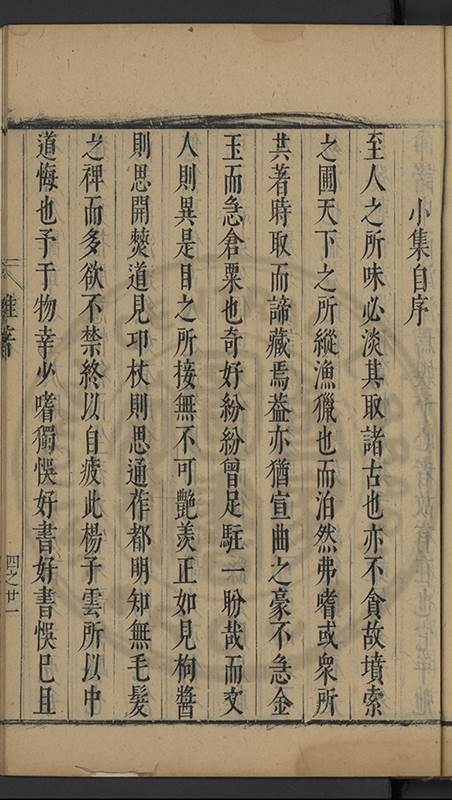 小集自序
至人之所味必淡其取諸古也亦不貪故墳索
之圃天下之所縱漁獵也而泊然弗嗜或衆所
共著時取而諦藏焉葢亦猶宣曲之豪不急金
玉而急倉粟也奇好紛紛曾足駐一盼哉而文
人則異是目之所接無不可艷羡正如見枸醬
則思開僰道見邛杖則思通莋都明知無毛髮
之裨而多欲不禁終以自疲此楊子雲所以中
道悔也予于物幸少嗜獨悮好書好書悮已且
雜著
四之廿一